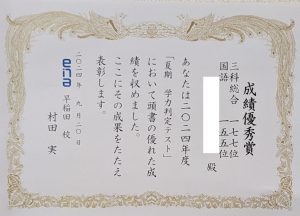 成績優秀賞
三科総合 一七七位
国語 一五五位
殿
あなたは二〇二四年度
「夏期 学力判定テスト」
において頭書の優れた成
績を収めました。
ここにその成果をたたえ
表彰します。
二〇二四年 九月二〇日
ena 早稲田校
村田 実